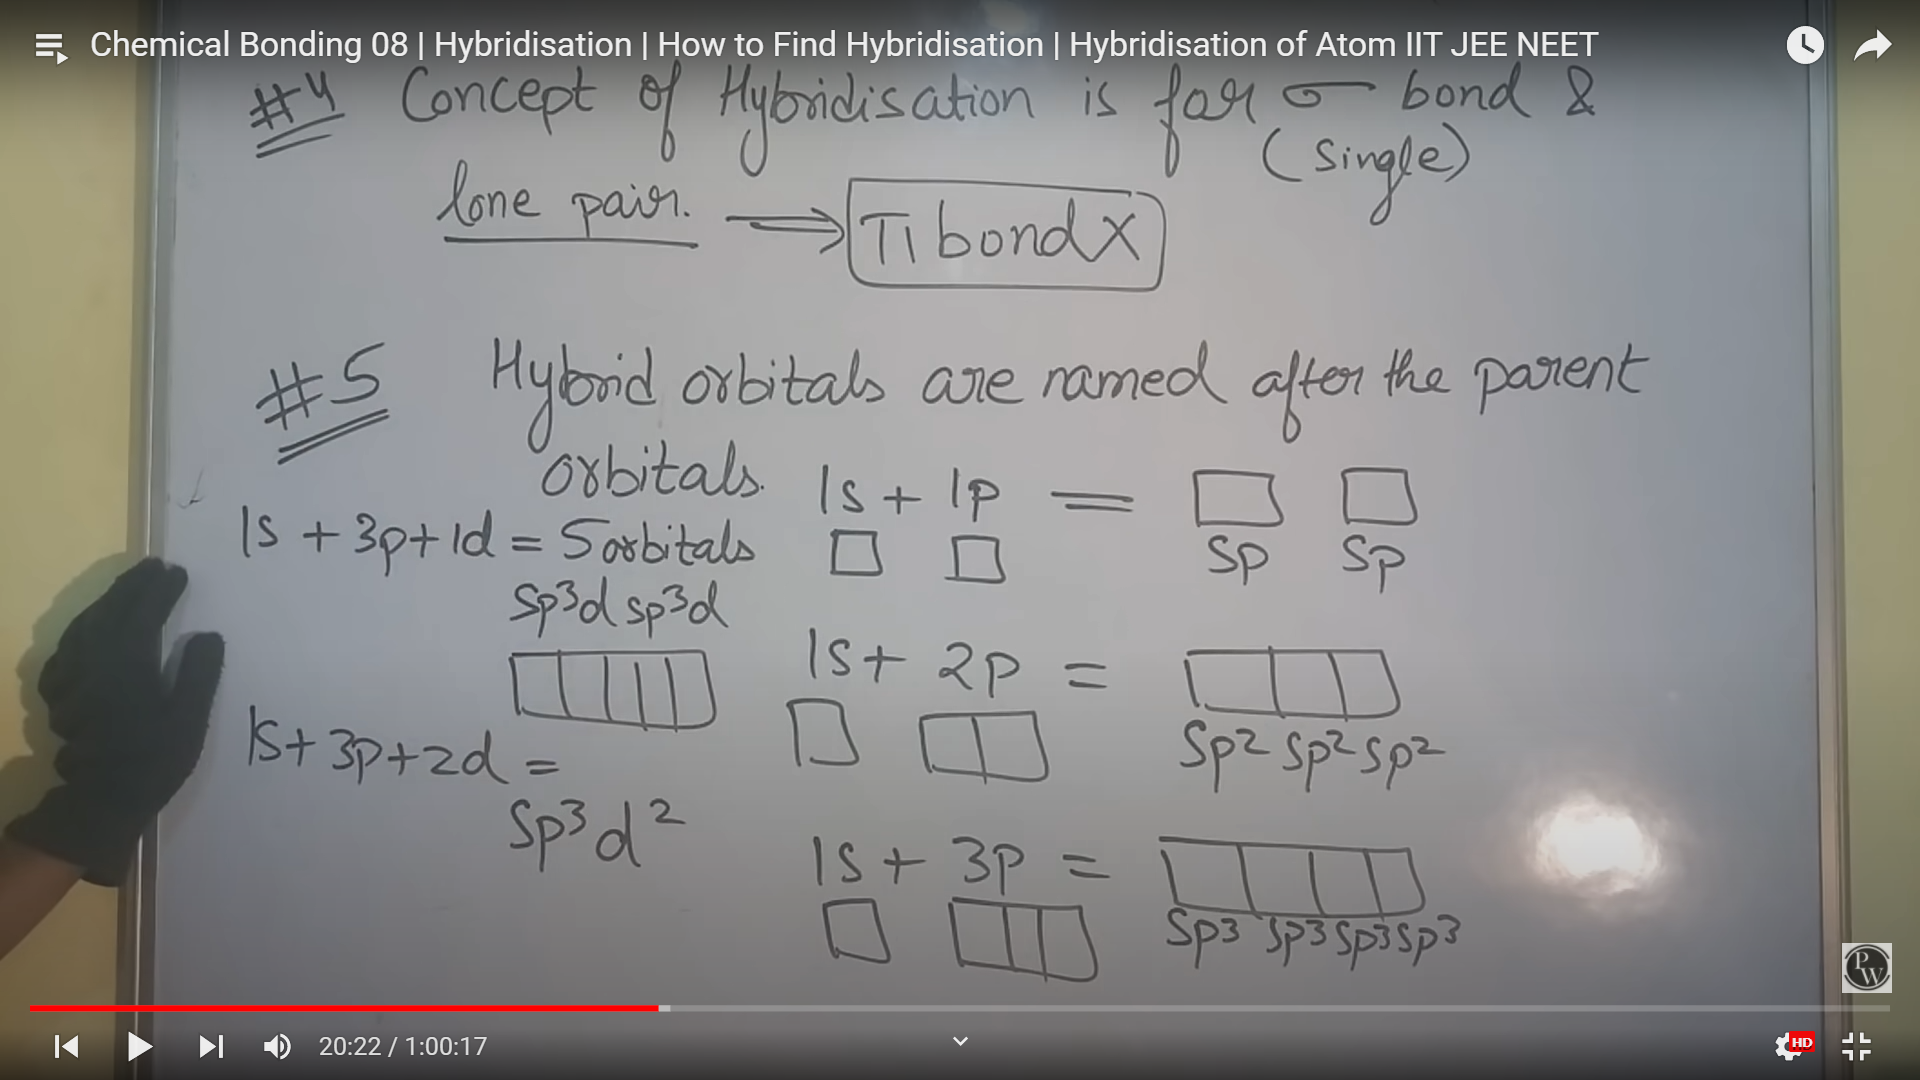 Chemical Bonding 08 | Hybridisation | How to Find Hybridisation | Hybridisation of Atom IIT JEE NEET
#4 Concept of Hybridisation is for σ bond &
(single)
lone pair. ⟹ π bond X
#5 Hybrid orbitals are named after the parent
orbitals.
1s + 1p =
sp sp
1s + 3p + 1d = 5 orbitals
sp³d sp³d
1s + 2p =
sp² sp² sp²
1s + 3p + 2d =
sp³d²
1s + 3p =
sp3 sp3 sp3 sp3
PW
20:22 / 1:00:17
HD